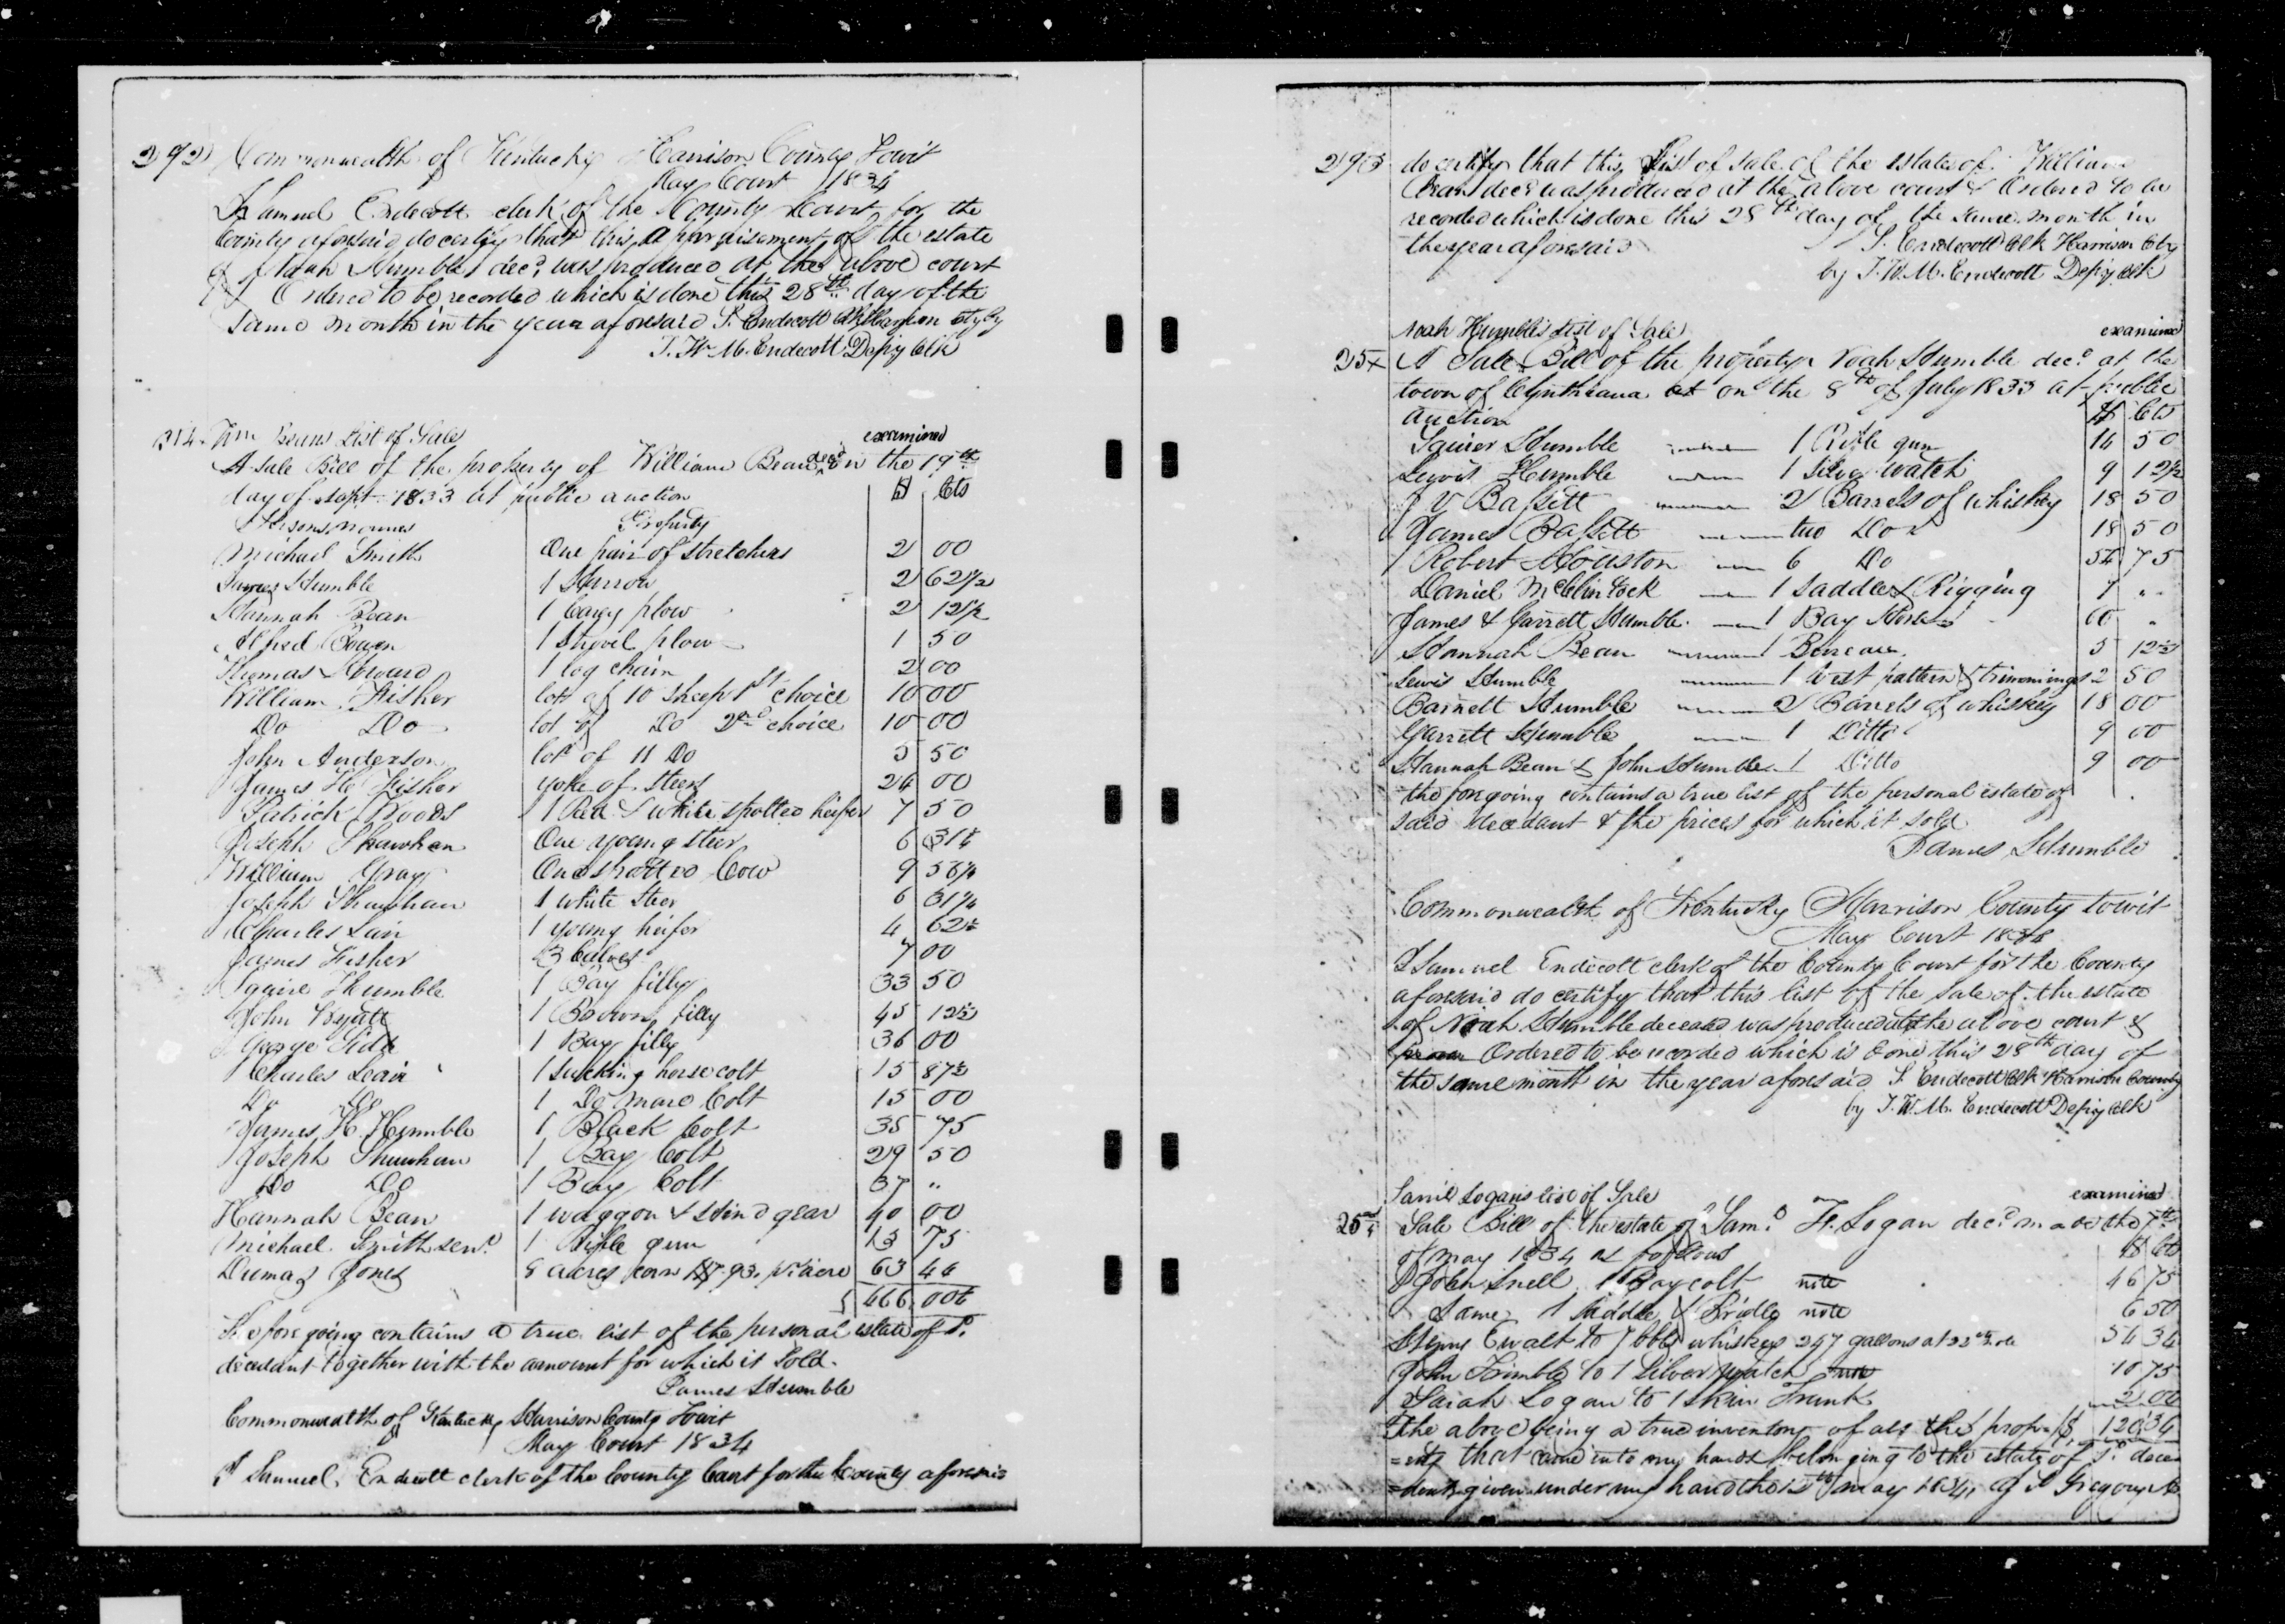 292
Commonwealth of Kentucky Harrison County Towit
May Court 1834
I Samuel Endecott clerk of the County Court for the
County aforesaid do certify that this appraisement of the estate
of Noah Humble decd. was produced at the above court
& Ordered to be recorded which is done this 28th day of the
same month in the year aforesaid S. Endecott Clk Harrison Cty by
J. W. M. Endecott Depty Clk
Wm Beans List of Sale
examined
A Sale Bill of the property of William Bean decd. on the 19th
day of Sept 1833 at public auction $ Cts
Persons names Property
Michael Smith One pair of stretchers 2 00
James Humble 1 Harrow 2 62 1/2
Hannah Bean 1 Carey plow 2 12 1/2
Alfred Bowen 1 Shovel plow 1 50
Thomas Howard 1 log chain 2 00
William Fisher lot of 10 sheep 1st choice 10 00
Do Do lot of Do 2nd choice 10 00
John Anderson lot of 11 Do 5 50
James H Fisher yoke of steers 24 00
Patrick Woods 1 Red & white spotted heifer 7 50
Joseph Shawhan One young steer 6 31 1/4
William Gray One spotted Cow 9 56 1/4
Joseph Shawhan 1 white Steer 6 31 1/4
Charles Lair 1 young heifer 4 62 1/2
James Fisher 3 Calves 7 00
Squire Humble 1 Bay filly 33 50
John Wyatt 1 Brown filly 45 12 1/2
George Kirk 1 Bay filly 36 00
Charles Leair 1 Sucking horse colt 15 87 1/2
Do Do 1 Do mare Colt 15 00
James H. Humble 1 Black Colt 35 75
Joseph Shawhan 1 Bay Colt 29 50
Do Do 1 Bay Colt 37 "
Hannah Bean 1 waggon & hind gear 40 00
Michael Smith senr. 1 Rifle gun 13 75
Dumas Jones 8 acres corn 7.93. pr acre 63 44
$ 466 00 1/4
The fore going contains a true list of the personal estate of sd.
decedant together with the amount for which it Sold.
James Humble
Commonwealth of Kentucky Harrison County Towit
May Court 1834
I Samuel Endecott clerk of the County Court for the County aforesaid
293
do certify that this List of sale of the estate of William
Bean decd. was produced at the above court & Ordered to be
recorded which is done this 28th day of the same month in
the year aforesaid S. Endecott Clk Harrison Cty
by J. W. M. Endecott Depty Clk
Noah Humble's List of Sale
examined
A Sale Bill of the property Noah Humble decd. at the
town of Cynthiana at on the 8th of July 1833 at public
auction $ Cts
Squier Humble 1 Rifle gun 14 50
Lewis Humble 1 Silver watch 9 12 1/2
J V Bassett 2 Barrels of whiskey 18 50
James Bassett two Do 18 50
Robert Houston 6 Do 54 75
Daniel McClintock 1 Saddle & Rigging 7 "
James & Garrett Humble 1 Bay Horse 60 "
Hannah Bean 1 Bureau 5 12 1/2
Lewis Humble 1 vest pattern & trimmings 2 50
Barnett Humble 2 Barrels of whiskey 18 00
Garrett Humble 1 Ditto 9 00
Hannah Bean & John Humble 1 Ditto 9 00
the foregoing contains a true list of the personal estate of
said decedant & the prices for which it sold
James Humble
Commonwealth of Kentucky Harrison County towit
May Court 1834
I Samuel Endecott clerk of the County Court for the County
aforesaid do certify that this list of the Sale of the estate
of Noah Humble deceased was produced at the above court &
Ordered to be recorded which is done this 28th day of
the same month in the year aforesaid S. Endecott Clk Harrison County
by J. W. M. Endecott Depty Clk
Saml Logan's list of Sale
examined
Sale Bill of the estate of Saml. H. Logan decd. made the 7th
of May 1834 as follows $ Cts
John Snell 1 Bay colt note 46 75
Same 1 Saddle & Bridle note 6 50
Henry Ewalt to 7 bbls whiskey 247 gallons at 22 cts note 54 34
John Trimble to 1 Silver watch note 10 75
Sarah Logan to 1 Skin Trunk 2 00
The above being a true inventory of all the prop- $ 120 34
=erty that came into my hands belonging to the estate of sd. dece
=dent given under my hand the 12th may 1834. Gregory